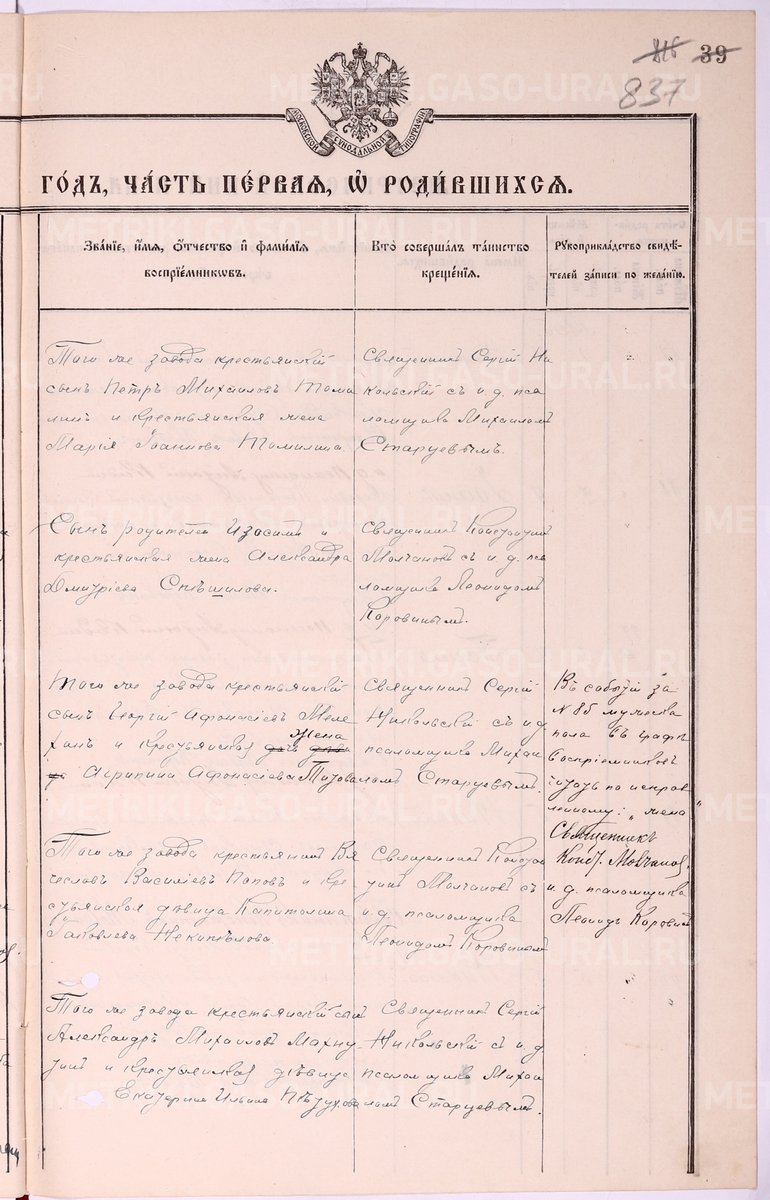 39
837
МОСКОВСКОЙ СѴНОДАЛЬНОЙ ТИПОГРАФІИ
ГО́ДЪ, ЧА́СТЬ ПЕ́РВАЯ, Ѿ РОДИ́ВШИХСЯ.
Зва́ніе, и҆́мя, ѻ҆́тчество и҆ фами́лія
воспріе́мниковъ.
Кто̀ соверша́лъ та́инство
креще́нія.
Рꙋкоприкла́дство свидѣ́-
телей за́писи по жела́нію.
Того же завода крестьянскій
сынъ Петръ Михаиловъ Томи
линъ и крестьянская жена
Марія Іоаннова Томилина.
Священникъ Сергій Ни
кольскій съ и. д. пса
ломщика Михаиломъ
Старцевымъ.
Сынъ родителей Изосима и
крестьянская жена Александра
Дмитріева Спѣшилова.
Священникъ Констатинъ
Молчановъ съ и. д. пса
ломщика Леонидомъ
Коровинымъ.
Того же завода крестьянскій
сынъ Георгій Афонасіевъ Меле
хинъ и крестьянская жена
Агрипина Афонасіева
Священникъ Сергій
Никольскій съ и. д.
псаломщика Михаи
ломъ Старцевымъ.
Въ событій за
№ 85 мужеска
пола въ графѣ
воспріемниковъ
читать по исправ
ленному: „жена“
Священникъ
Конст. Молчановъ.
и. д. псаломщика
Леонидъ Коровинъ
Того же завода крестьянинъ Вя
чеславъ Василіевъ Поповъ и кре
стьянская дѣвица Капитолина
Іаковлева Некипѣлова.
Священникъ Конста
тинъ Молчановъ съ
и. д. псаломщика
Леонидомъ Коровинымъ
Того же завода крестьянскій сынъ
Александръ Михаиловъ Махну
тинъ и крестьянская дѣвица
Екатерина Ильина Пѣтухова
Священникъ Сергій
Никольскій съ и. д.
псаломщика Михаи
ломъ Старцевымъ.
METRIK.GASO-URAL.RU